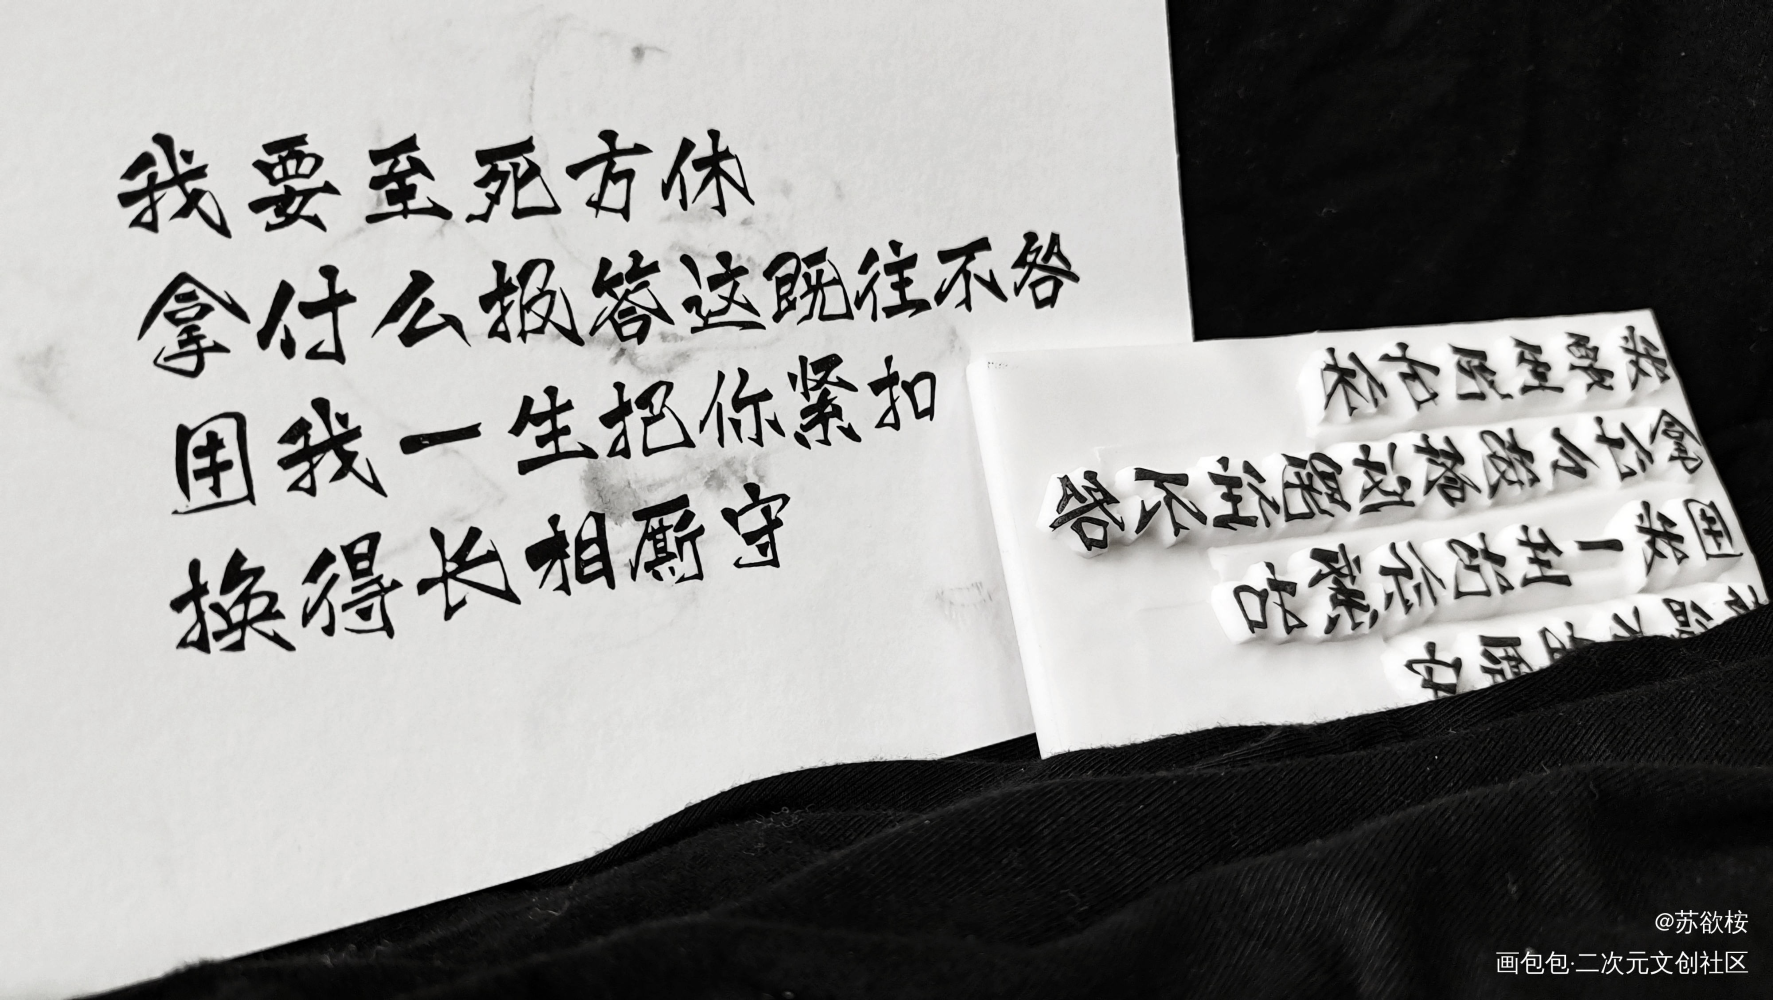 我要至死方休
拿付么报答这既往不咎
用我一生把你紧扣
换得长相厮守
@苏欲桉
画包包·二次元文创社区